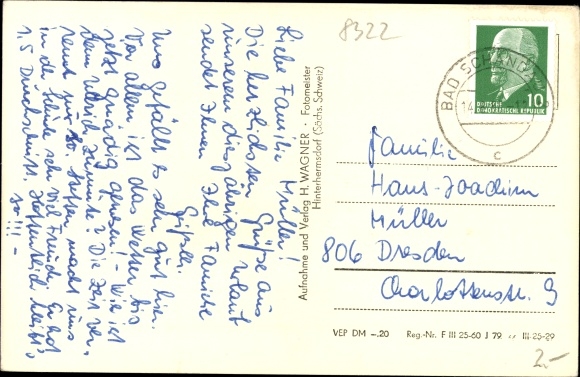 8322
Liebe Familie Müller!
Die herzlichsten Grüße aus
unserem diesjährigen Urlaub
sendet Ihnen Ihre Familie
Uns gefällt es sehr gut hier.
Vor allem ist das Wetter bis
jetzt gnädig gewesen! – Wie ist
denn Zeit ver-
rennt nur so. macht uns
in der Schule sehr viel Freude. Er hat
1,5 Durchschnitt. Hoffentlich bleibt's
so!!! –
Aufnahme und Verlag H. WAGNER · Fotomeister
Hinterhermsdorf (Sächs. Schweiz)
BAD SCHANDAU
c
DEUTSCHE
DEMOKRATISCHE REPUBLIK
10
Familie
Hans-Joachim
Müller
806 Dresden
Charlottenstr. 9
VEP DM –,20 Reg.-Nr. F III 25-60 J 79 III-25-29
2,-